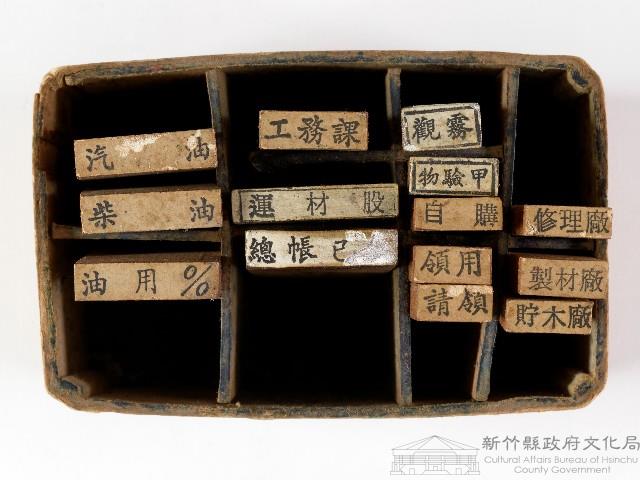 汽油
柴油
油用%
工務課
運材股
總帳已
觀霧
物驗甲
自購
領用
請領
修理廠
製材廠
貯木廠
新竹縣政府文化局
Cultural Affairs Bureau of Hsinchu
County Government